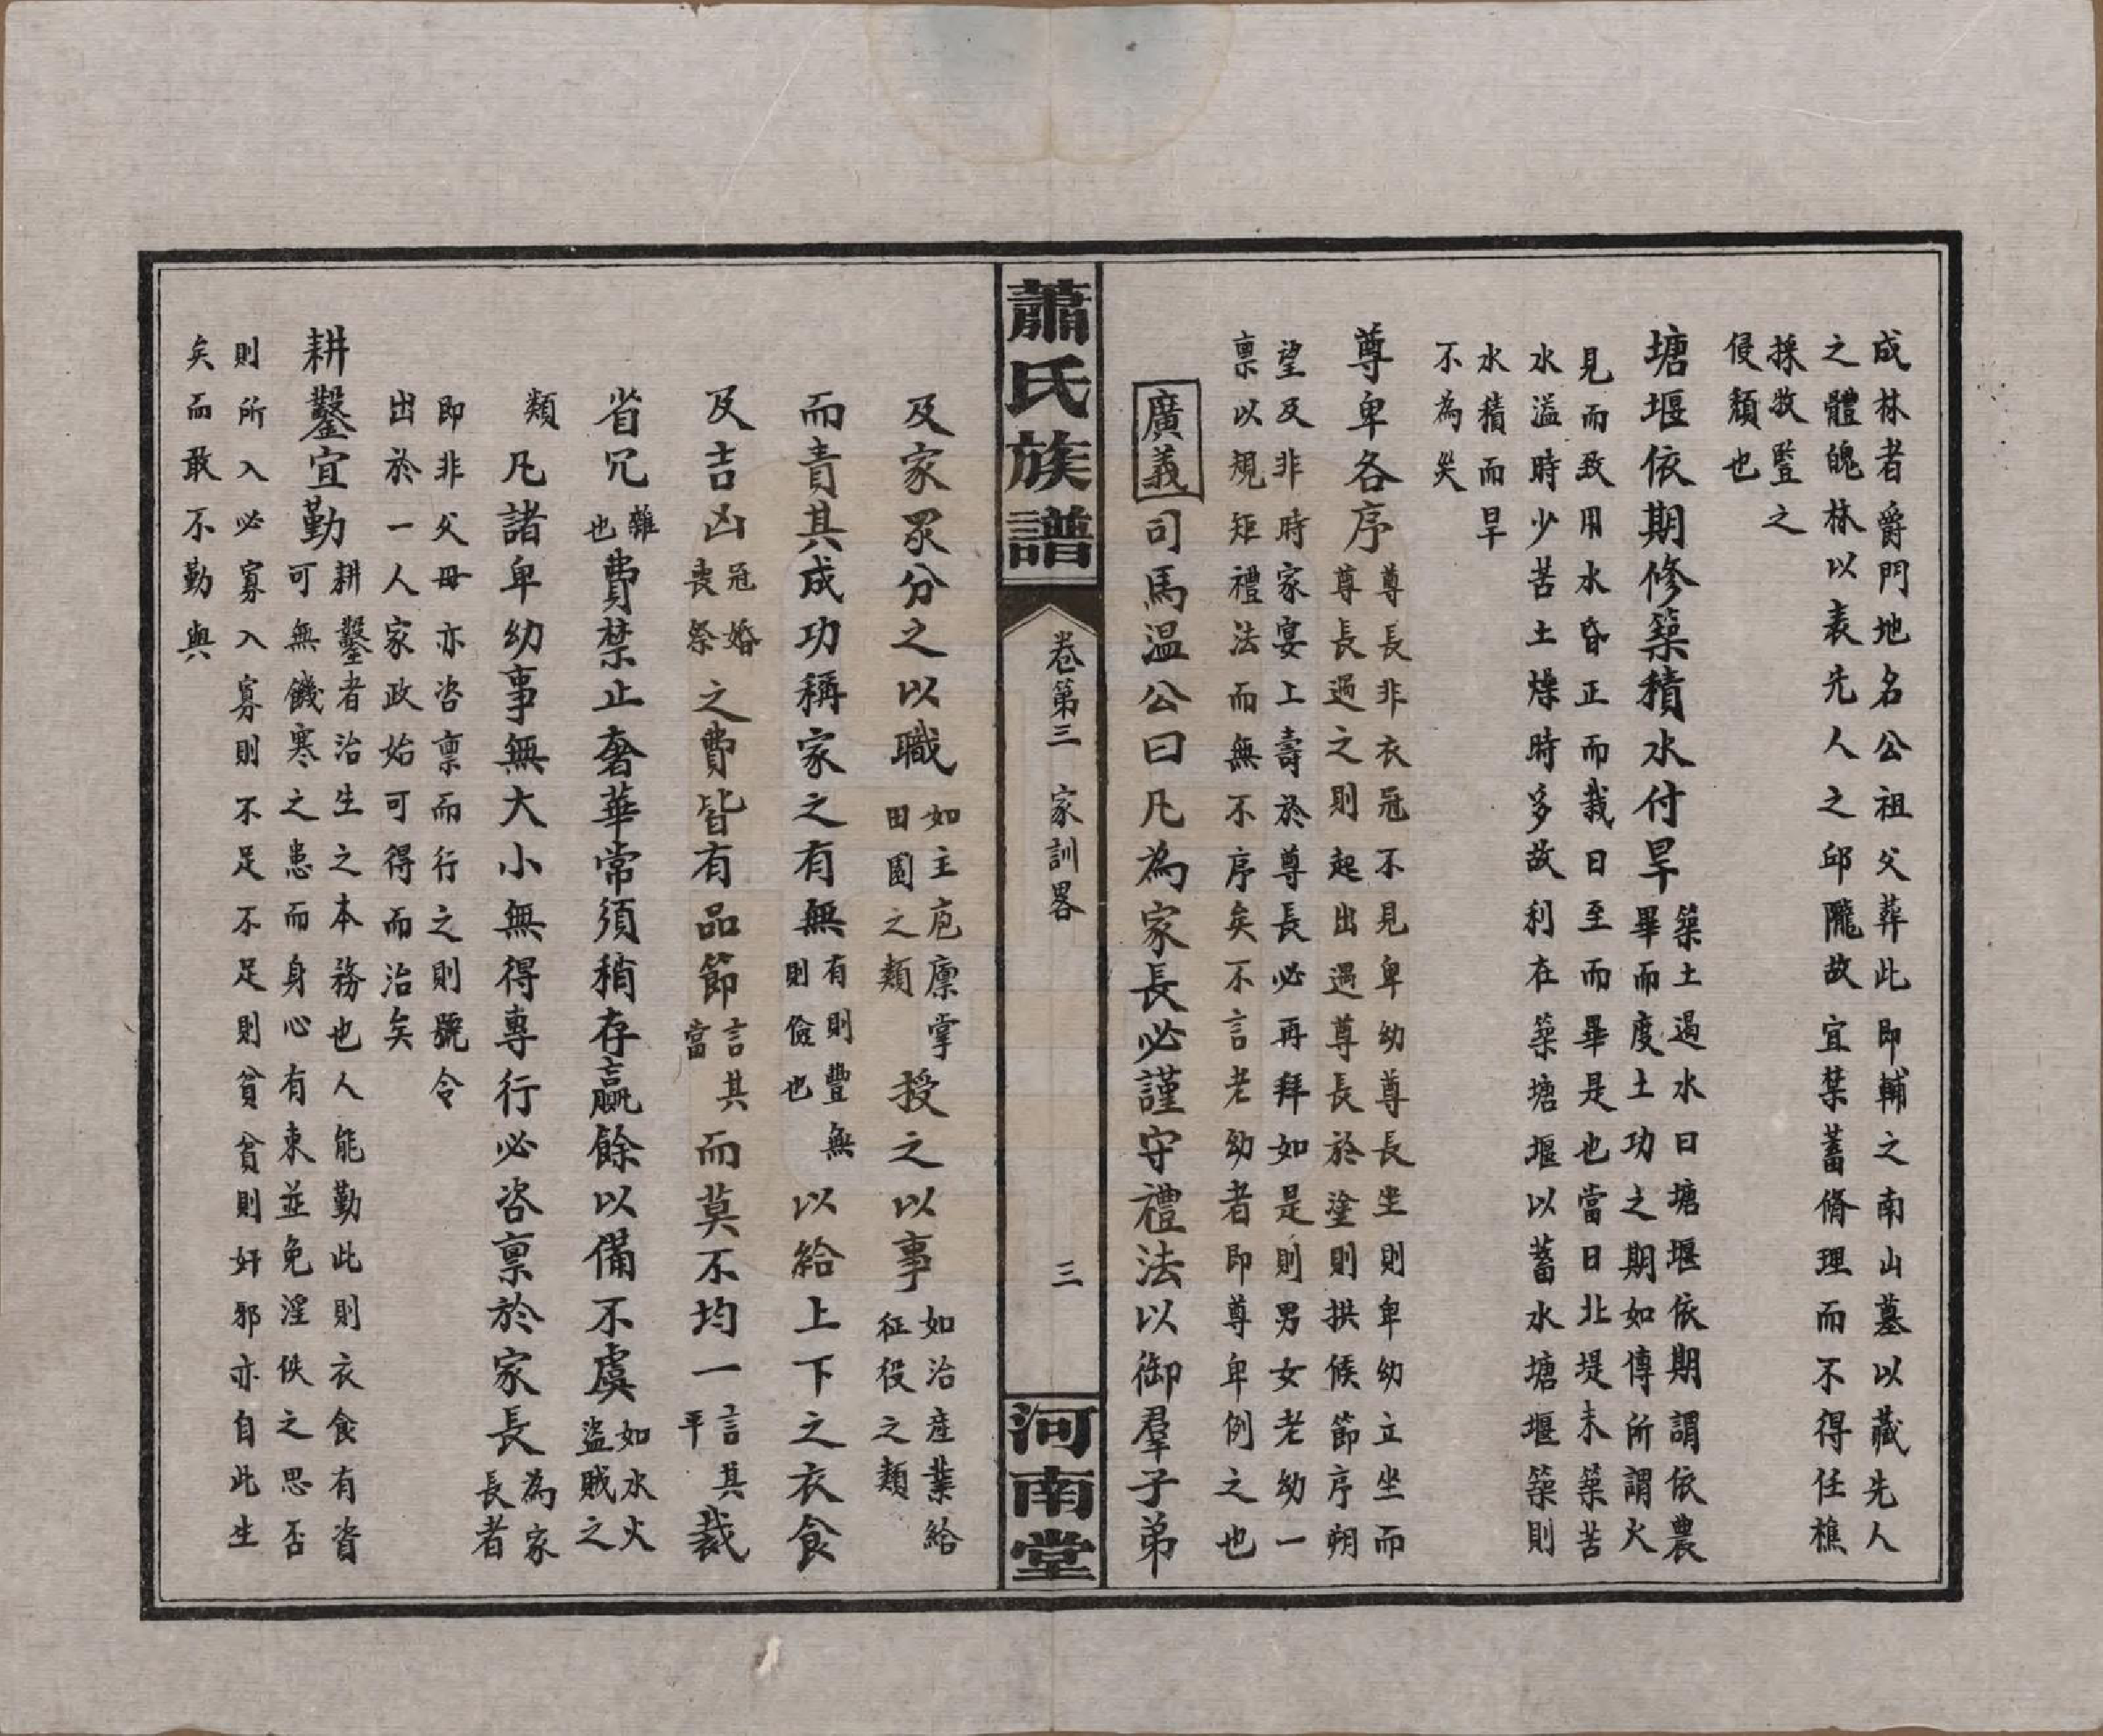 成林者爵門地名公祖父葬此即輔之南山墓以藏先人
之體魄林以表先人之邱隴故宜禁蓄脩理而不得任樵
採牧䜿之
侵頹也
塘堰依期修築積水付旱
築土過水曰塘堰依期謂依農
畢而度土功之期如傳所謂火
見而致用水昏正而栽日至而畢是也當日北堤未築苦
水溢時少苦土燥時多故利在築塘堰以蓄水塘堰築則
水積而旱
不為災
尊卑各序
尊長非衣冠不見卑幼尊長坐則卑幼立坐而
尊長過之則起出遇尊長於塗則拱候節序朔
望及非時家宴上壽於尊長必再拜如是則男女老幼一
禀以規矩禮法而無不序矣不言老幼者即尊卑例之也
廣義司馬温公曰凡為家長必謹守禮法以御羣子弟
蕭氏族譜
卷第三 家訓畧
三
河南堂
及家眾分之以職
如主庖廩掌
田園之類
授之以事
如治產業給
征役之類
而責其成功稱家之有無
有則豐無
則儉也
以給上下之衣食
及吉凶
冠婚
喪祭
之費皆有品節
言其
當
而莫不均一
言其
平
裁
省冗
雜
也
費禁止奢華常須稍存贏餘以備不虞
如水火
盜賊之
類
凡諸卑幼事無大小無得專行必咨禀於家長
為家
長者
即非父母亦咨禀而行之則號令
出於一人家政始可得而治矣
耕鑿宜勤
耕鑿者治生之本務也人能勤此則衣食有資
可無饑寒之患而身心有束並免淫佚之思否
則所入必寡入寡則不足不足則貧貧則奸邪亦自此生
矣而敢不勤與